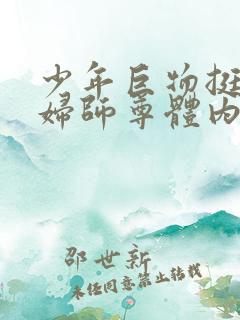 少年巨物挺
婦師尊體內
邵世新
未经同意禁止转载